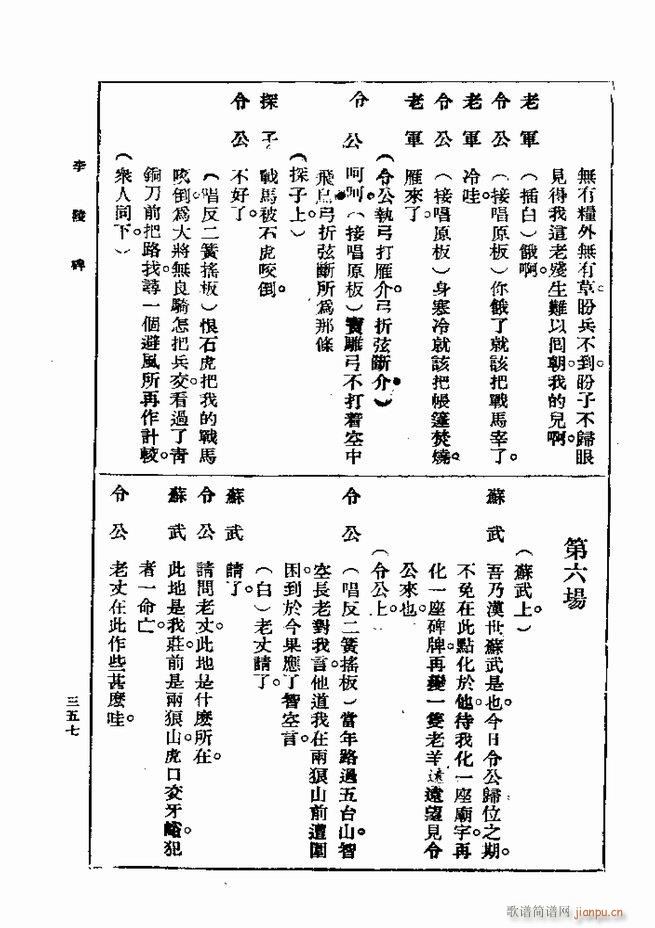 無有糧外無有草盼兵不到盼子不歸眼
見得我這老殘生難以囘朝我的兒啊。
老軍 (插白)餓啊。
令公 (接唱原板)你餓了就該把戰馬宰了。
老軍 冷哇。
令公 (接唱原板)身寒冷就該把帳篷焚燒。
老軍 雁來了。
(令公執弓打雁介弓折弦斷介)
令公 呵呵。(接唱原板)寶雕弓不打着空中
飛鳥弓折弦斷所爲那條
(探子上。)
探子 戰馬被石虎咬倒。
令公 不好了。
(唱反二簧搖板)恨石虎把我的戰馬
咬倒爲大將無良騎怎把兵交看過了青
銅刀前把路找尋一個避風所再作計較。
(衆人同下。)
第六場
(蘇武上。)
蘇武 吾乃漢世蘇武是也今日令公歸位之期。
不免在此點化於他待我化一座廟宇再
化一座碑牌再變一隻老羊遠遠望見令
公來也。
(令公上。)
令公 (唱反二簧搖板)當年路過五台山智
空長老對我言他道我在兩狼山前遭圍
困到於今果應了智空言。
(白)老丈請了。
蘇武 請了。
令公 請問老丈此地是什麽所在。
蘇武 此地是我莊前是兩狼山虎口交牙峪犯
者一命亡。
令公 老丈在此作些甚麽哇。
李陵碑
三五七
歌谱简谱网 jianpu.cn